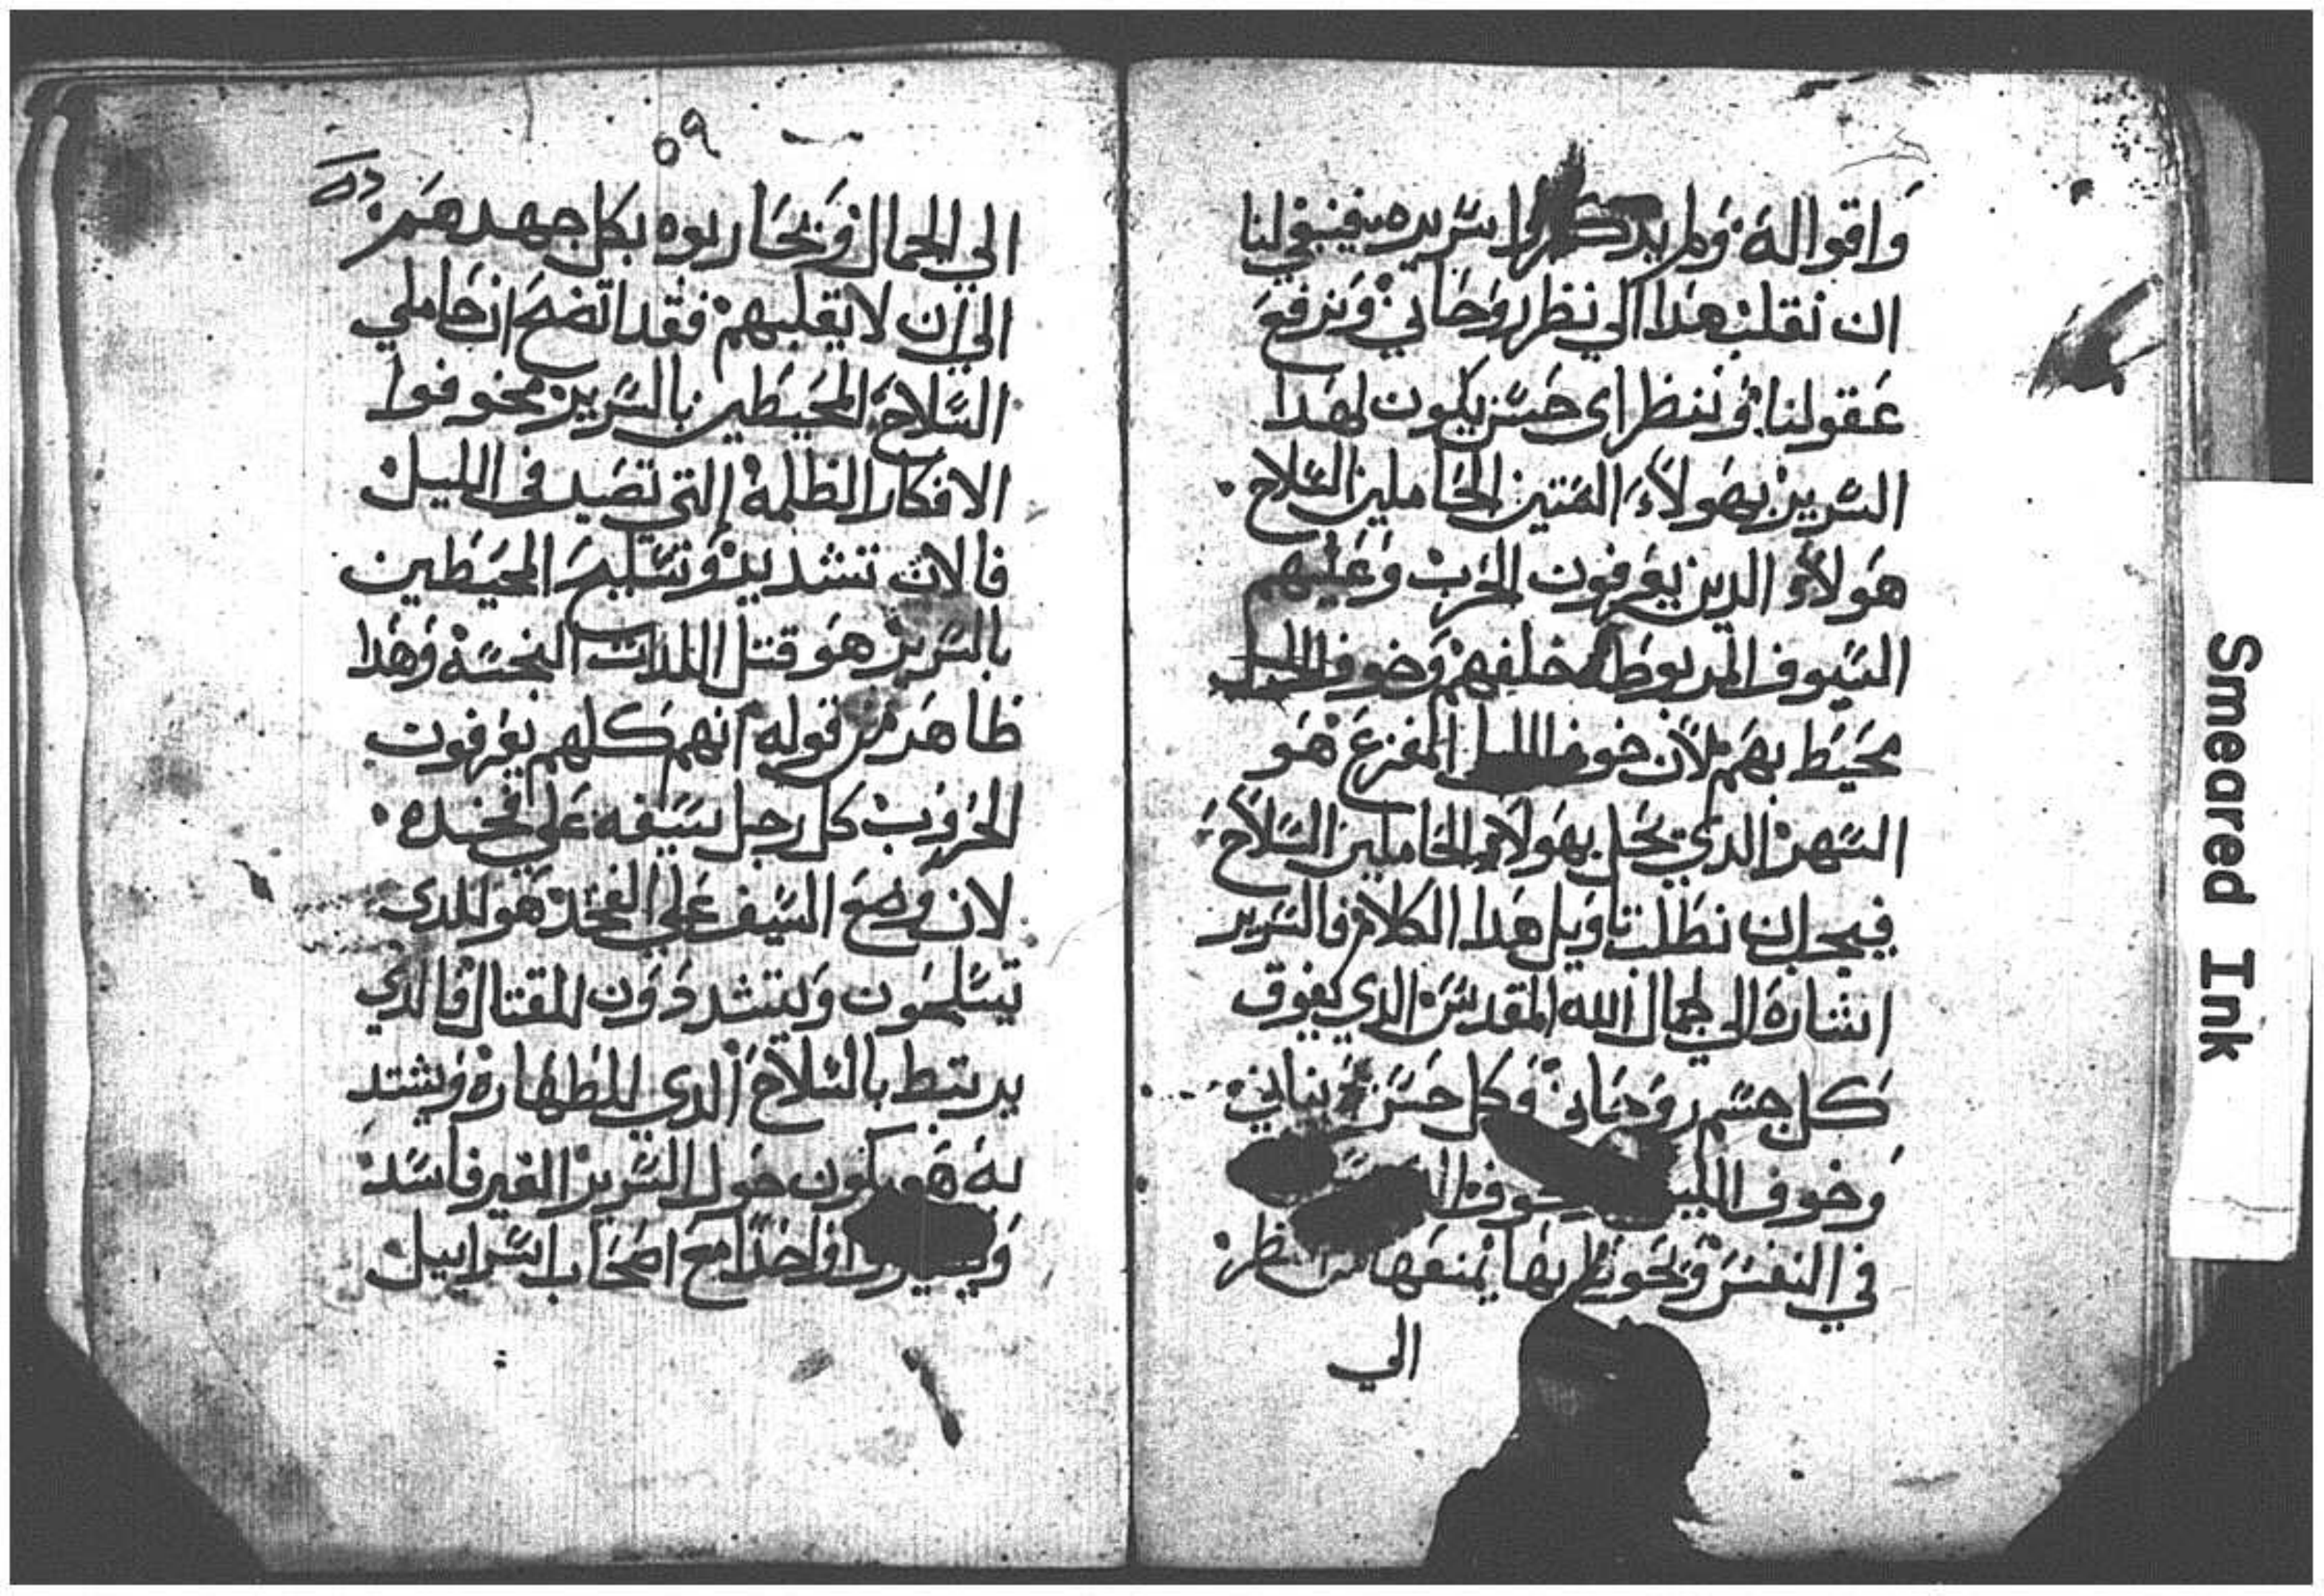 واقواله ولم يدكروا سريره فينبغي لنا
ان نقلب هدا الي نظر روحاني ونرفع
عقولنا وننظر اى حسن يكون لهدا
السرير بهولاء الستين الحاملين السلاح
هولاء الدين يعرفون الحرب وعليهم
السيوف المربوطه خلفهم وخوف الليل
محيط بهم لان خوف الليل المفزع هو
السهر الدي يحل بهولاء الحاملين السلاح
فيجب ان نطلب تاويل هدا الكلام فالسرير
اشاره الي جمال الله المقدس الدي يفوق
كل جسم روحاني وكل حسن
وخوف الليل
في النفس وتحوط بها يمنعها من النظر
الي
٥٩
الي الجمال ويحاربوه بكل جهدهم
الي ان لا يغلبهم فقد اتضح ان حاملي
السلاح المحيطين بالسرير مخوفوا
الافكار الظلمة التي تصيد في الليل
فالان تشديد وتسليح المحيطين
بالسرير هو قتل اللدات النجسة وهدا
ظاهر من قوله انهم كلهم يعرفون
الحروب كل رجل سيفه علي فخده
لان وضع السيف علي الفخد هو للدى
يتسلحون ويتشددون للقتال فالدي
يرتبط بالسلاح الدي للطهارة ويشتد
به هو يكون حول السرير الغير فاسد
واحدا مع اصحاب اسراييل
Smeared Ink